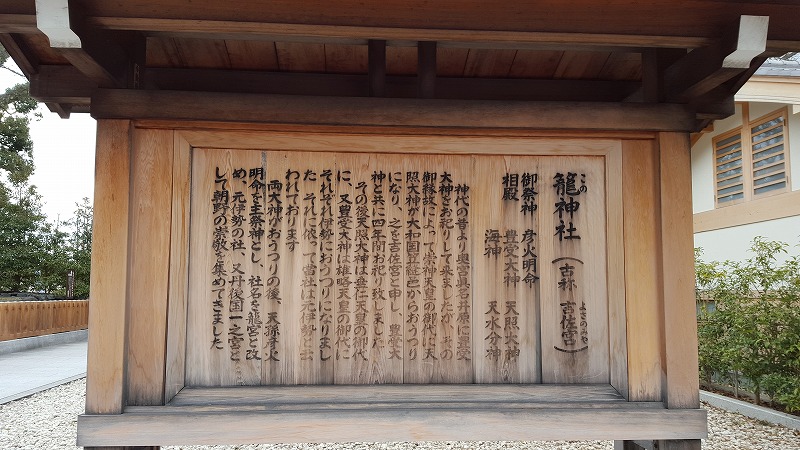 このよさのみや
籠神社（古称 吉佐宮）
御祭神 彦火明命
相殿 豊受大神 天照大神
海神 天水分神
神代の昔より奥宮眞名井原に豊受
大神をお祀りして来ましたが、その
御縁故によって崇神天皇の御代に天
照大神が大和国笠縫邑からおうつり
になり、之を吉佐宮と申し、豊受大
神と共に四年間お祀り致しました
その後天照大神は垂仁天皇の御代
に、又豊受大神は雄略天皇の御代に
それぞれ伊勢におうつりになりまし
た それに依って當社は元伊勢と云
われております
両大神がおうつりの後、天孫彦火
明命を主祭神とし、社名を籠宮と改
め、元伊勢の社、又丹後国一之宮と
して朝野の崇敬を集めてきました